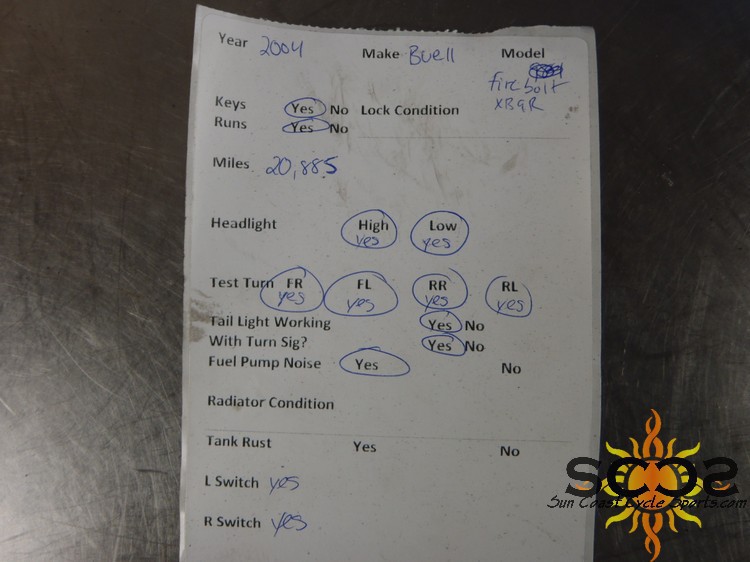 Year 2004 Make Buell Model
firebolt
XB9R
Keys Yes No Lock Condition
Runs Yes No
Miles 20,885
Headlight High Low
yes yes
Test Turn FR FL RR RL
yes yes yes yes
Tail Light Working Yes No
With Turn Sig? Yes No
Fuel Pump Noise Yes No
Radiator Condition
Tank Rust Yes No
L Switch yes
R Switch yes
SCCS
Sun Coast Cycle Sports.com